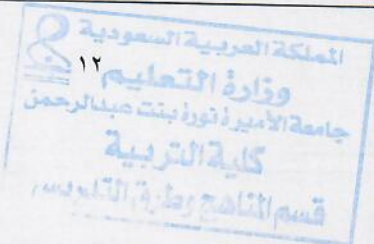 المملكة العربية السعودية
١٢
وزارة التعليم
جامعة الأميرة نورة بنت عبدالرحمن
كلية التربية
قسم المناهج وطرق التدريس